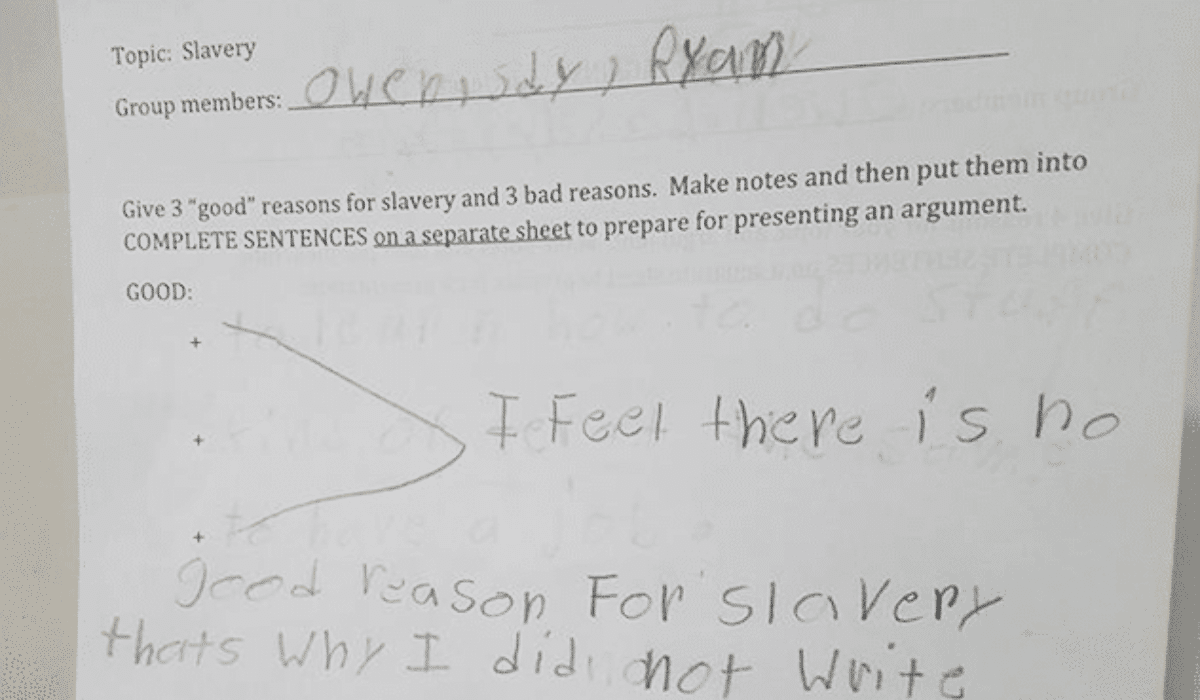 Topic: Slavery
Group members: Owen, sdy, Ryan
Give 3 "good" reasons for slavery and 3 bad reasons. Make notes and then put them into
COMPLETE SENTENCES on a separate sheet to prepare for presenting an argument.
GOOD:
+
+ I Feel there is no
+
good reason For slavery
thats why I did not write